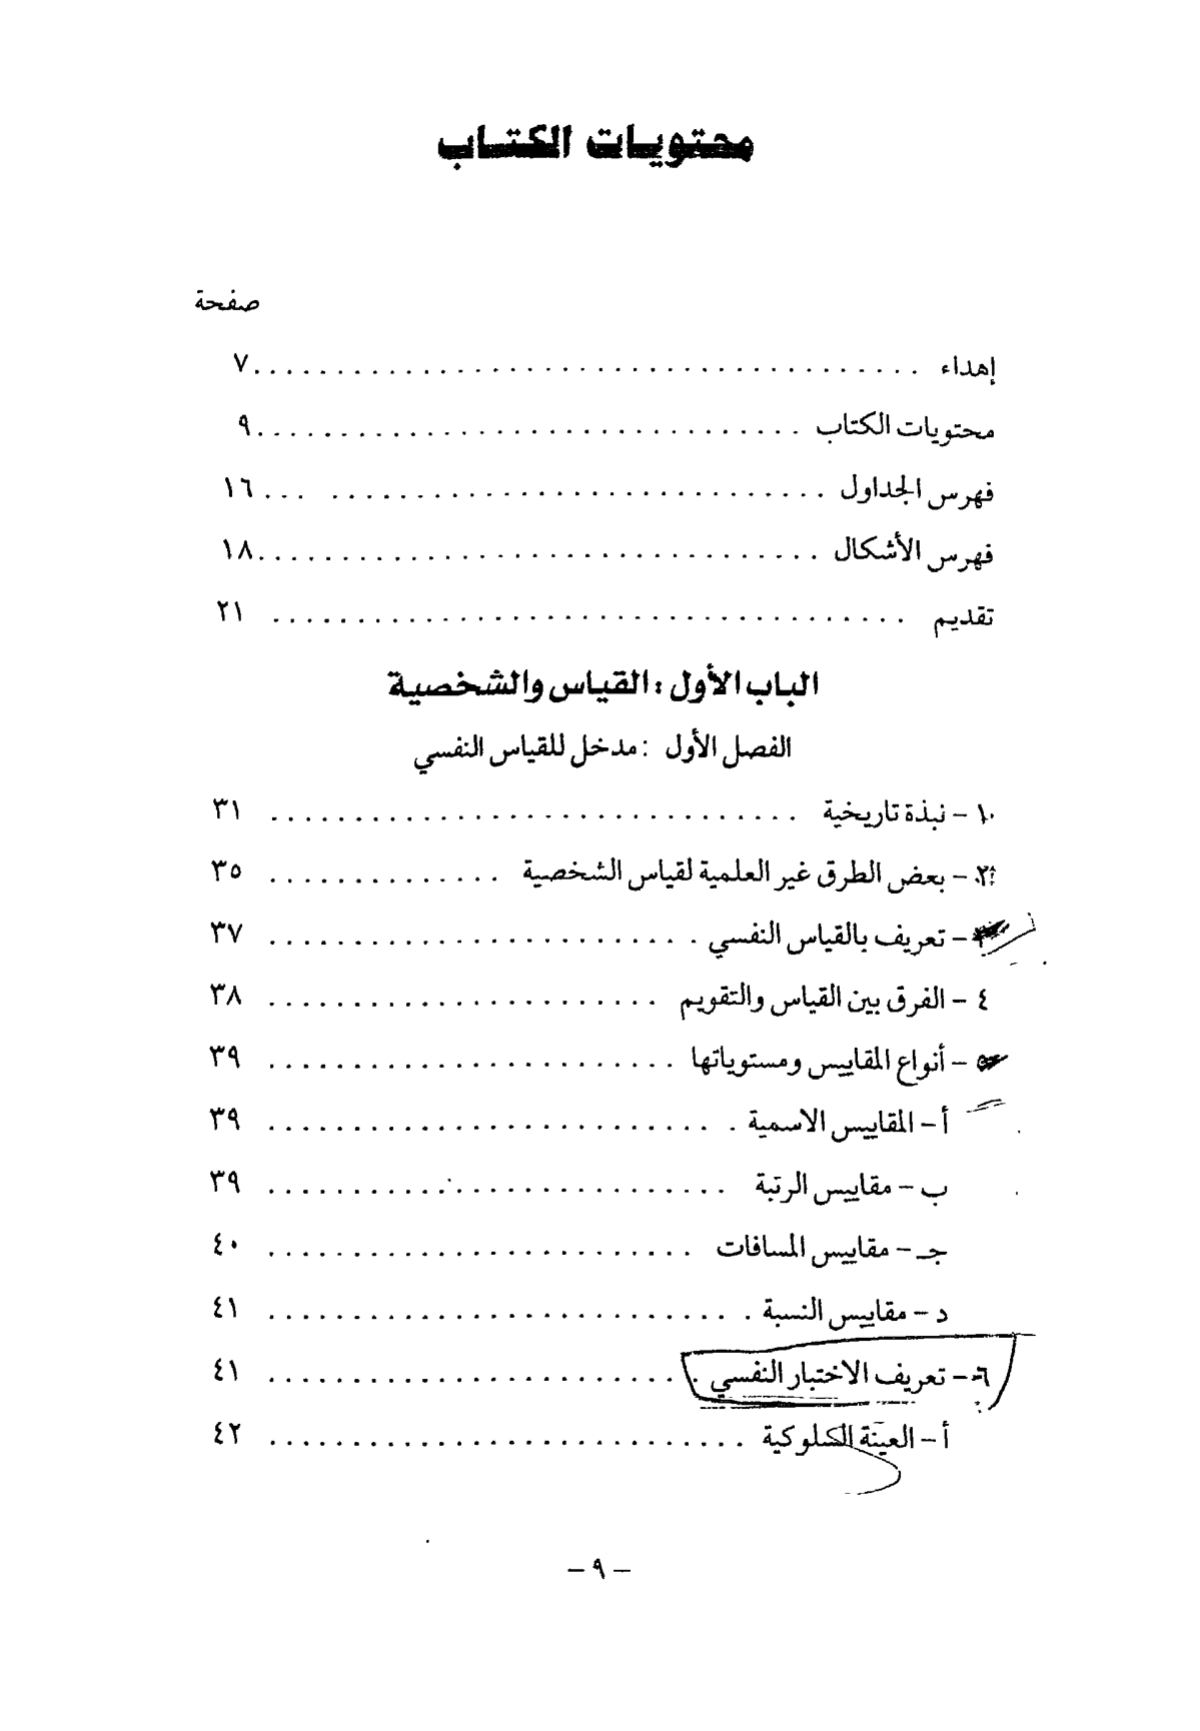 محتويات الكتاب
صفحة
إهداء ........................................ ٧
محتويات الكتاب ................................. ٩
فهرس الجداول .............................. ... ١٦
فهرس الأشكال .................................. ١٨
تقديم ....................................... ٢١
الباب الأول : القياس والشخصية
الفصل الأول : مدخل للقياس النفسي
١ - نبذة تاريخية ................................ ٣١
٢ - بعض الطرق غير العلمية لقياس الشخصية .............. ٣٥
٣ - تعريف بالقياس النفسي .......................... ٣٧
٤ - الفرق بين القياس والتقويم ........................ ٣٨
٥ - أنواع المقاييس ومستوياتها ......................... ٣٩
أ - المقاييس الاسمية ............................ ٣٩
ب - مقاييس الرتبة ............................ ٣٩
جـ - مقاييس المسافات .......................... ٤٠
د - مقاييس النسبة ............................. ٤١
٦ - تعريف الاختبار النفسي .......................... ٤١
أ - العينة السلوكية ............................. ٤٢
- ٩ -